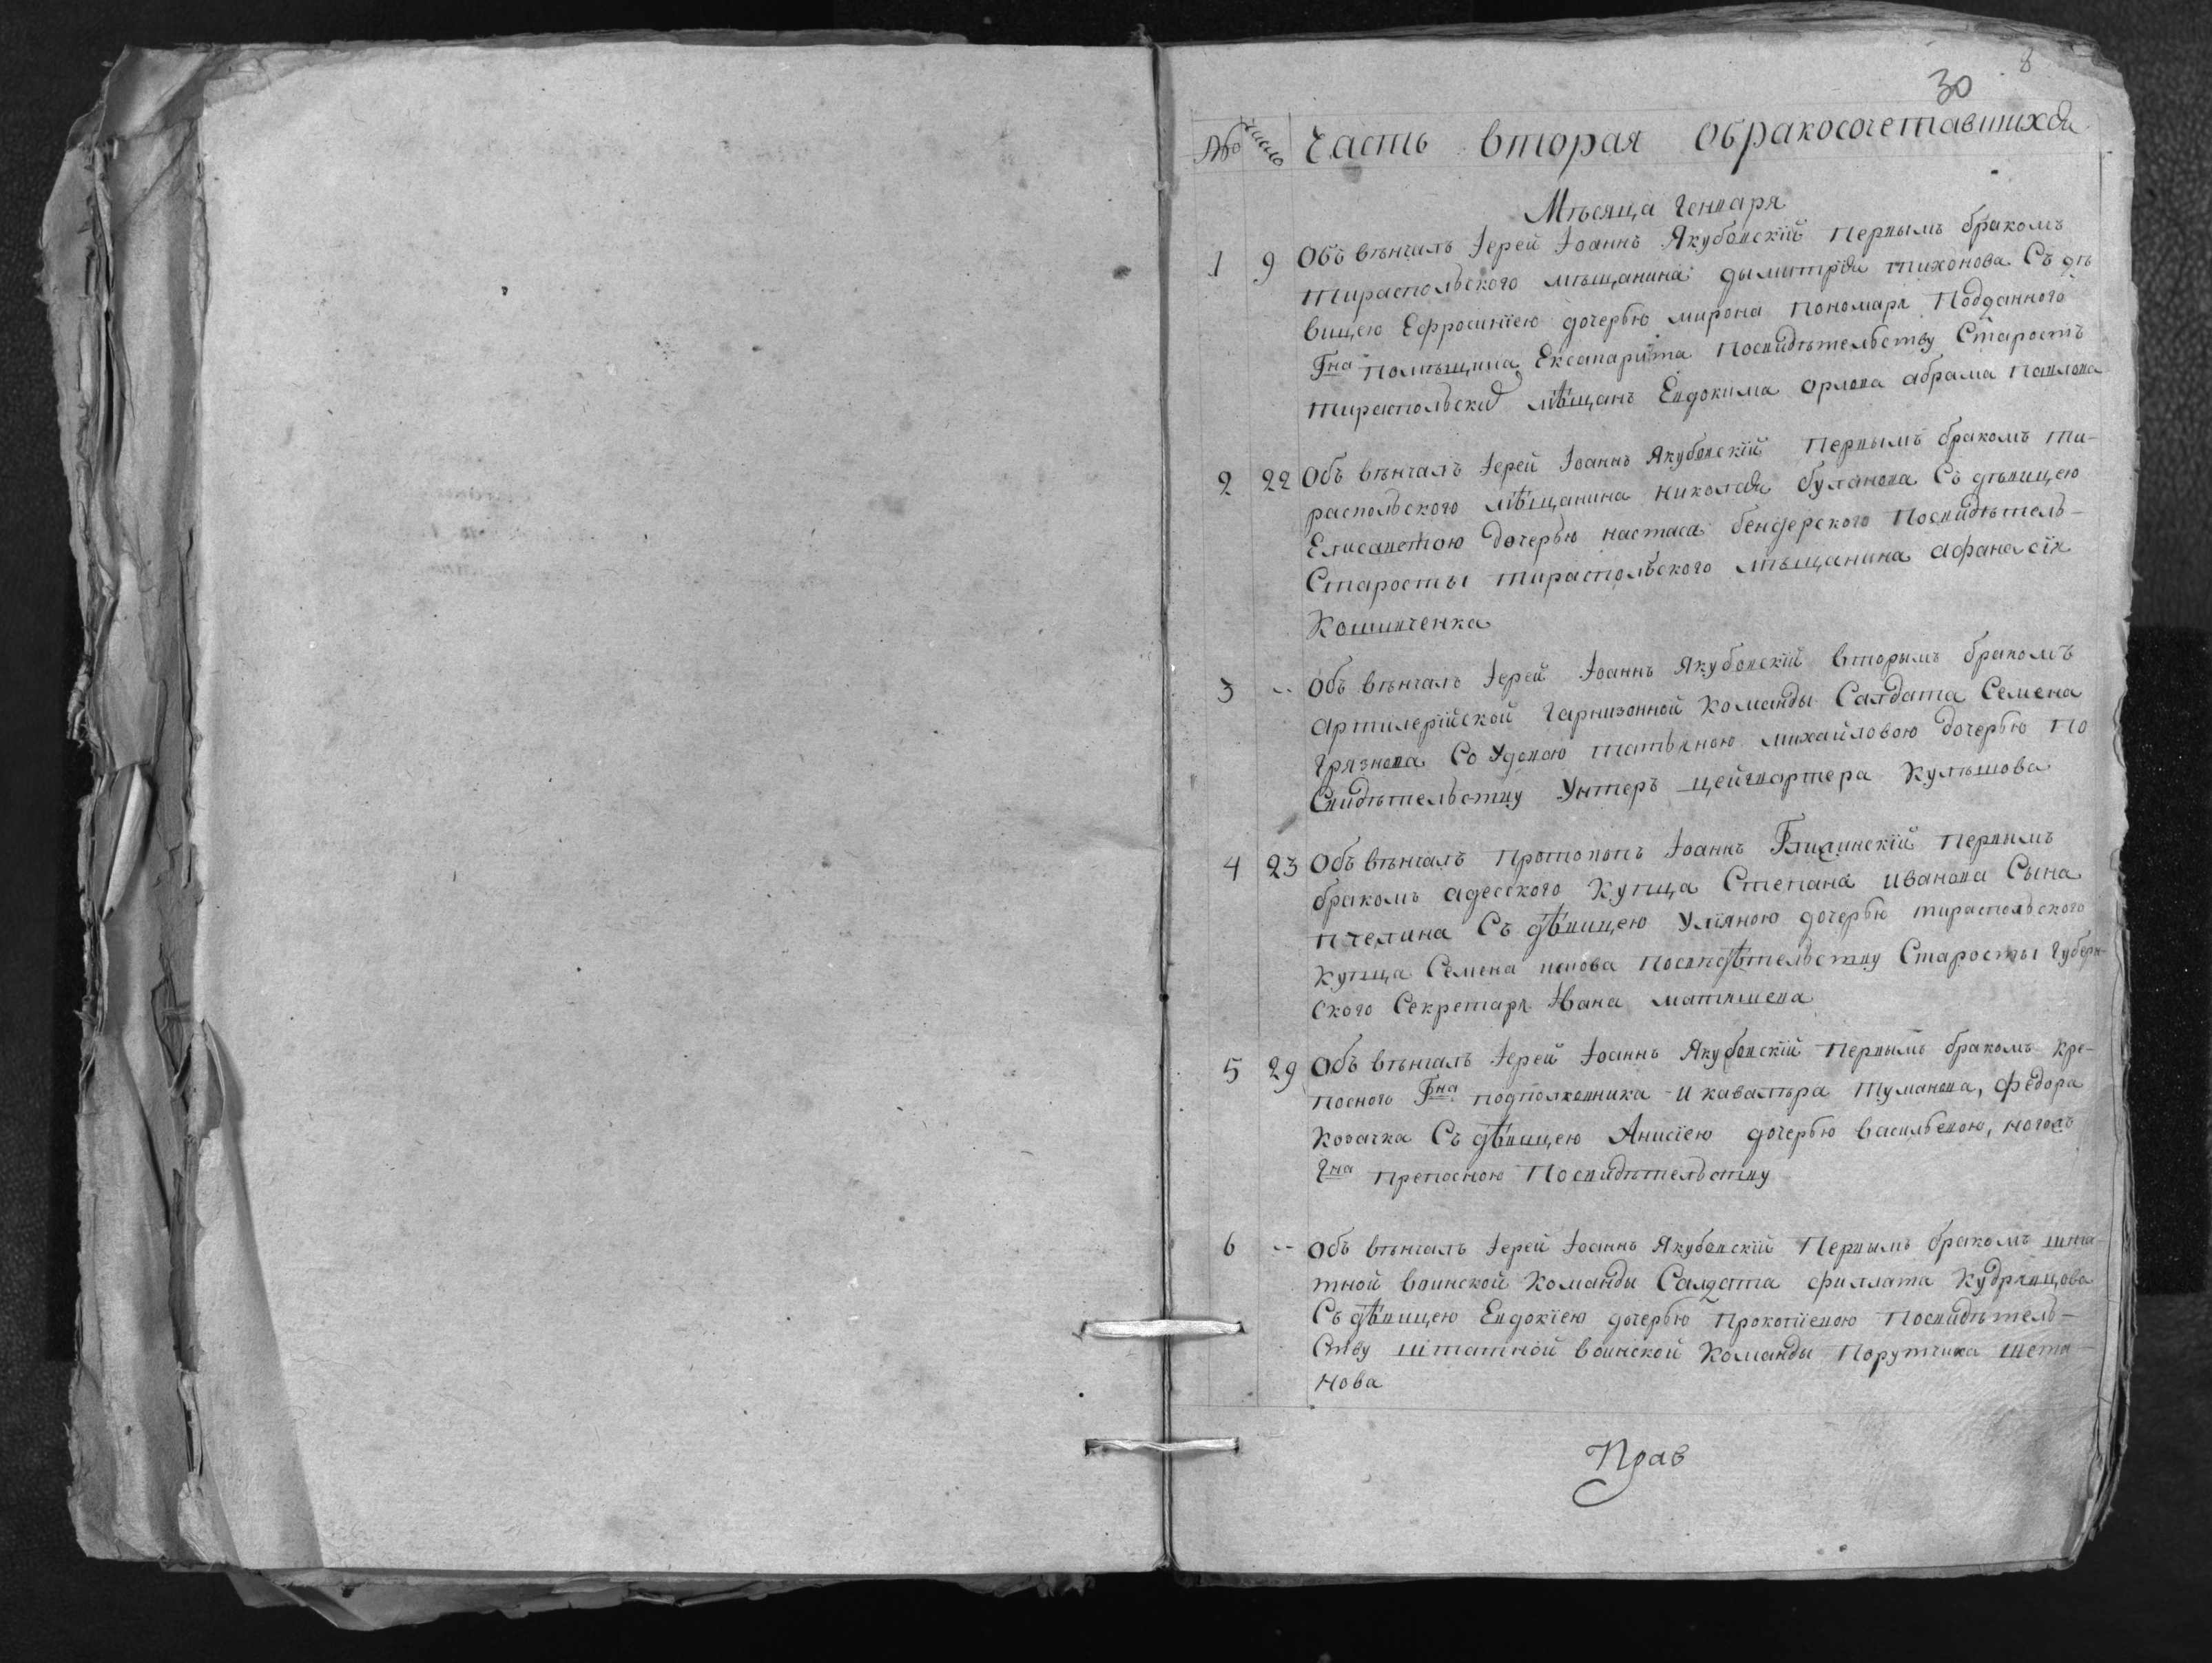 8
30
№ число Часть вторая обракосочетавшихся
Мѣсяца Генваря
1 9 Объ вѣнчалъ Іерей Іоаннъ Якубовскій первымъ бракомъ
тираспольского мѣщанина дымитрія тихонова Съ дѣ
вицею Ефросиніею дочербю мирона пономаря Подданного
Гна Помѣщика Посвидѣтельству Старостъ
тираспольски мѣщанъ Евдокима орлова абрама павлова
2 22 Объ вѣнчалъ Іерей Іоаннъ Якубовскій Первымъ бракомъ ти-
распольского мѣщанина николая буланова Съ дѣвицею
Елисаветою дочербю настаса бендерского Посвидѣтель-
Старосты тираспольского мѣщанина афанасія
3 -- Объ вѣнчалъ Іерей Іоаннъ Якубовскій вторымъ бракомъ
артилерійской гарнизонной команды Салдата Семена
грязнова Со Удовою татьяною михайловою дочербю по
Свидѣтельству Унтеръ цейгвартера Кулѣшова
4 23 Объ вѣнчалъ протопопъ Іоаннъ первымъ
бракомъ адесского Купца Степана иванова Сына
пчелина Съ дѣвицею Уліяною дочербю тираспольского
купца Семена Посвидѣтельству Старосты Губерн-
ского Секретаря Ивана матвѣева
5 29 Объ вѣнчалъ Іерей Іоаннъ Якубовскій первымъ бракомъ кре-
посного Гна подполковника и кавалѣра туманова, федора
козачка Съ дѣвицею Анисіею дочербю васильевою,
Гна препосною Посвидѣтельству
6 -- Объ вѣнчалъ Іерей Іоаннъ Якубовскій Первымъ бракомъ шта-
тной воинской команды Салдата филата Кудрявцова
Съ дѣвицею Евдокіею дочербю прокопіевою Посвидѣтель-
Ству штатной воинской команды Порутчика шета-
нова
Прав